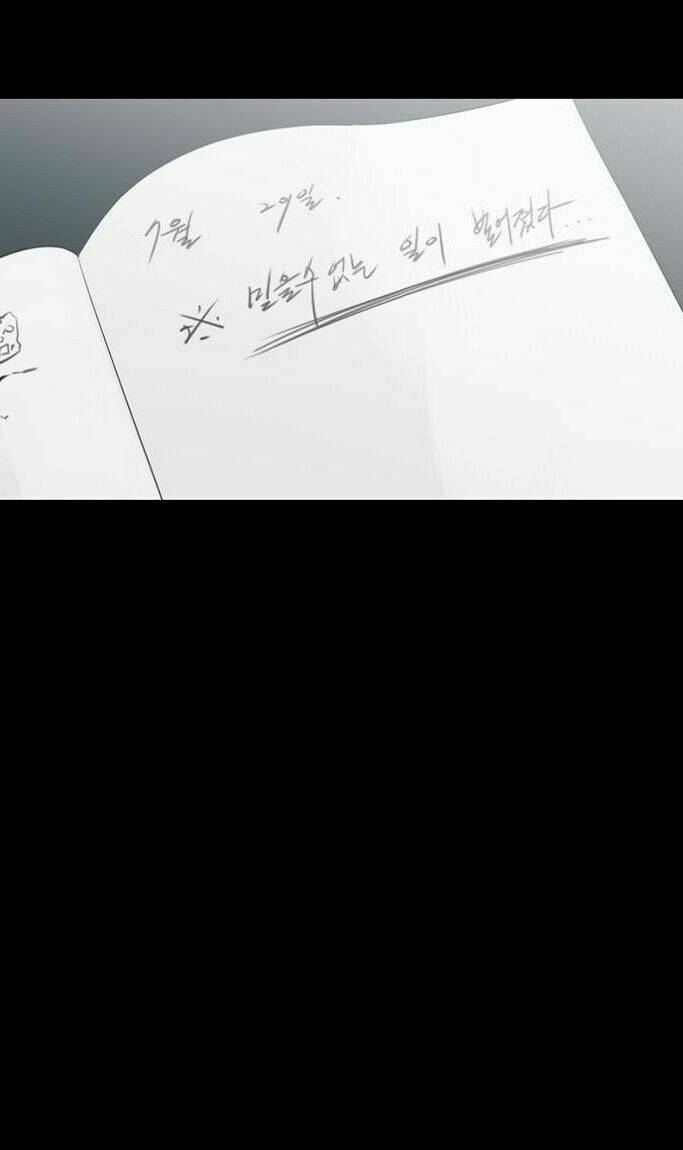 7월 29일.
※ 믿을수 없는 일이 벌어졌다...